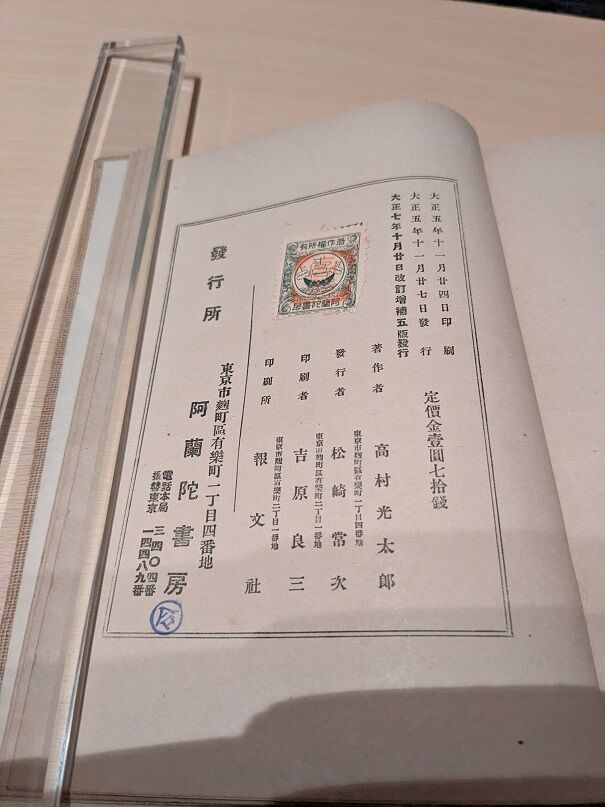 大正五年十一月廿四日印刷
大正五年十一月廿七日發行
大正七年十月廿日改訂增補五版發行
定價金壹圓七拾錢
著作者
東京市麹町區有樂町一丁目四番地
高村光太郎
發行者
東京市麹町區有樂町一丁目四番地
松崎常次
印刷者
東京市麹町區有樂町二丁目一番地
吉原良三
印刷所
東京市麹町區有樂町二丁目一番地
報文社
著作權所有
阿蘭陀書房
發行所
東京市麹町區有樂町一丁目四番地
阿蘭陀書房
電話本局三四〇四番
振替東京一四四八九番